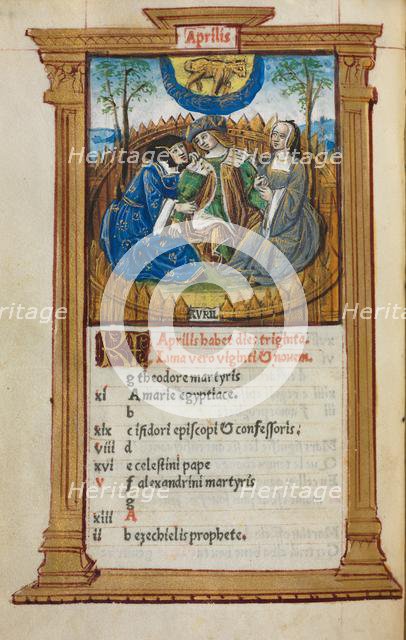 Aprilis
AVRIL
KL Aprilis habet dies triginta.
Luna vero viginti & novem.
g theodore martyris
xi A marie egyptiace.
b
xix c isidori episcopi & confessoris.
viii d
xvi e celestini pape
v f alexandrini martyris
g
xiii A
ii b ezechielis prophete.
Heritage
Heritage
Heritage
Heritage
Heritage
Heritage
Heritage
Heritage
Heritage